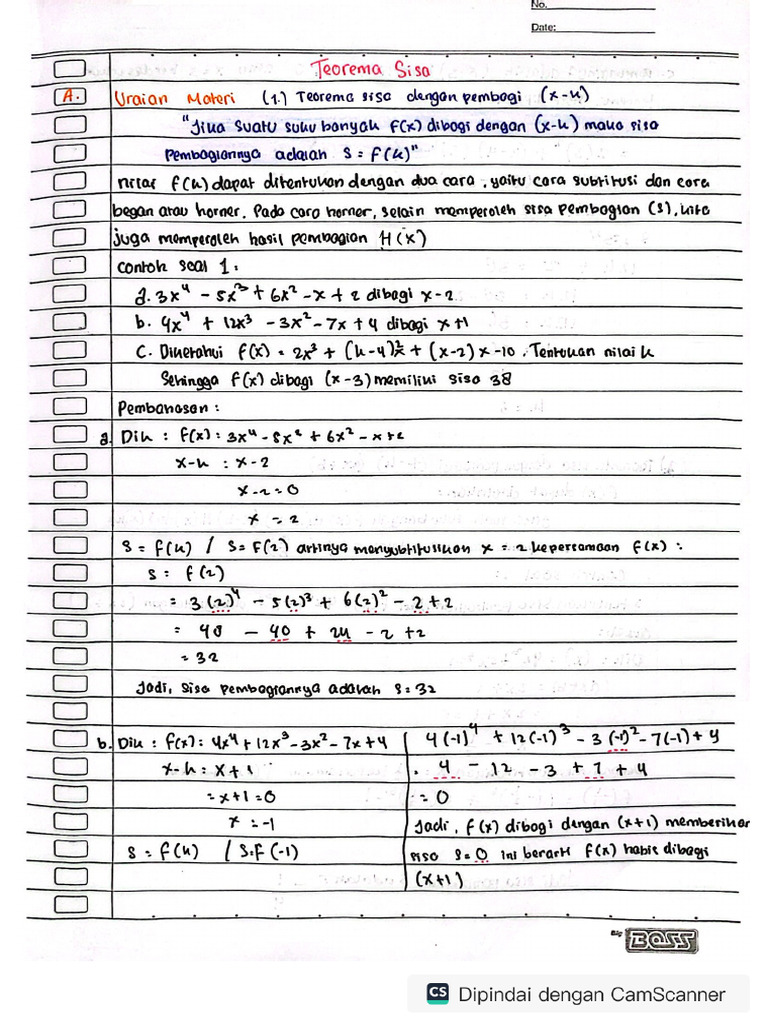 No.
Date:
Teorema Sisa
A. Uraian Materi (1.) Teorema sisa dengan pembagi (x-k)
"Jika suatu suku banyak f(x) dibagi dengan (x-k) maka sisa
pembagiannya adalah s = f(k)"
nilai f(k) dapat ditentukan dengan dua cara, yaitu cara subtitusi dan cara
bagan atau horner. Pada cara horner, selain memperoleh sisa pembagian (s), kita
juga memperoleh hasil pembagian H(x)
contoh soal 1:
a. 3x⁴ - 5x³ + 6x² - x + 2 dibagi x-2
b. 4x⁴ + 12x³ - 3x² - 7x + 4 dibagi x+1
c. Diketahui f(x) = 2x³ + (k-4)x² + (x-2)x -10. Tentukan nilai k
Sehingga f(x) dibagi (x-3) memiliki sisa 38
Pembahasan:
a. Dik : f(x): 3x⁴ - 5x² + 6x² - x+2
x-k : x-2
x-2=0
x = 2
s = f(k) / s= F(2) artinya mensubtitusikan x = 2 kepersamaan f(x) :
s = f(2)
= 3(2)⁴ - 5(2)³ + 6(2)² - 2 + 2
= 48 - 40 + 24 - 2 + 2
= 32
Jadi, sisa pembagiannya adalah s = 32
b. Dik : f(x): 4x⁴ + 12x³ - 3x² - 7x + 4
x-k: x+1
= x+1=0
x = -1
s = f(k) / s.F(-1)
4(-1)⁴ + 12(-1)³ - 3(-1)² - 7(-1) + 4
= 4 - 12 - 3 + 7 + 4
= 0
Jadi, f(x) dibagi dengan (x+1) memberikan
sisa s= 0 ini berarti f(x) habis dibagi
(x+1)
Big BOSS
CS Dipindai dengan CamScanner